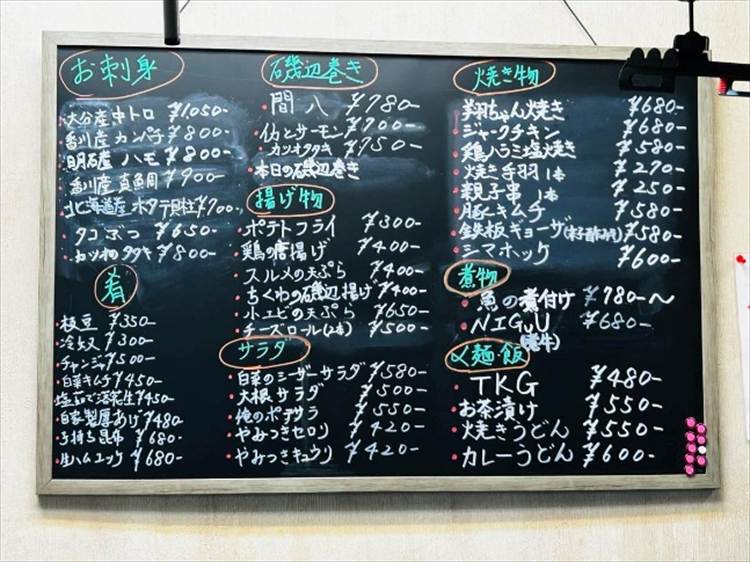 お刺身
大分産中トロ ¥1,050-
香川産カンパチ ¥800-
明石産ハモ ¥800-
香川産真鯛 ¥900-
北海道産ホタテ貝柱 ¥700-
タコぶつ ¥650-
カツオタタキ ¥800-
肴
枝豆 ¥350-
冷奴 ¥300-
チャンジャ ¥500-
白菜キムチ ¥450-
塩茹で落花生 ¥450-
自家製厚あげ ¥480
子持ち昆布 ¥680-
生ハムユッケ ¥680-
磯辺巻き
間八 ¥780-
サーモン ¥700-
カツオタタキ ¥750-
本日の磯辺巻き
揚げ物
ポテトフライ ¥300-
鶏の唐揚げ ¥400-
スルメの天ぷら ¥400-
ちくわの磯辺揚げ ¥400-
小エビの天ぷら ¥650-
チーズロール(2本) ¥500-
サラダ
白菜のシーザーサラダ ¥580-
大根サラダ ¥500-
俺のポテサラ ¥550-
やみつきセロリ ¥420-
やみつきキュウリ ¥420-
焼き物
翔ちゃん焼き ¥680-
ジャークチキン ¥680-
鶏ハラミ塩焼き ¥580-
焼き手羽 1本 ¥270-
親子串 1本 ¥250-
豚キムチ ¥580-
鉄板ギョーザ ¥580-
シマホッケ ¥600-
煮物
魚の煮付け ¥780-〜
NIGuU ¥680-
〆麺・飯
TKG ¥480-
お茶漬け ¥550-
焼きうどん ¥550-
カレーうどん ¥600-